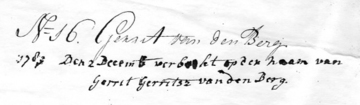 No 16. Gerret van den Berg.
1783 Den 2 Decemb verbockt op den naam van
Gerrit Gerritsz van den Berg.